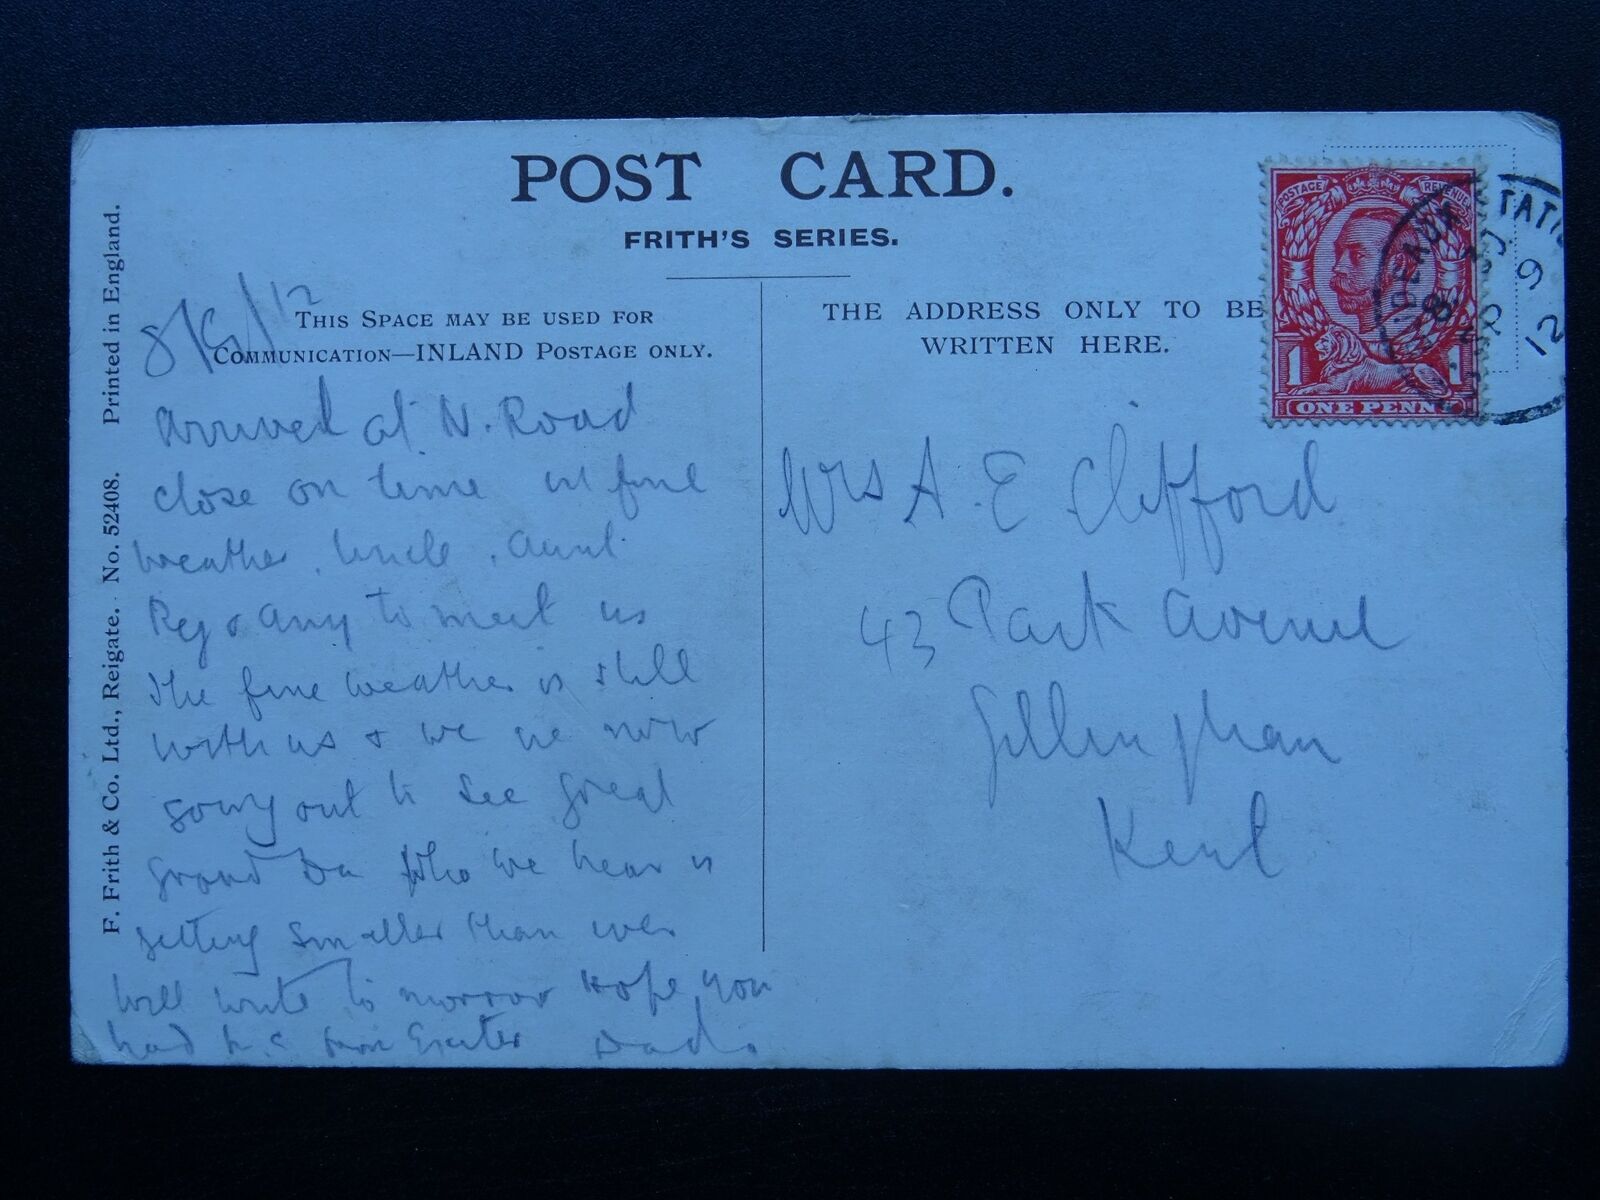 POST CARD.
FRITH'S SERIES.
Printed in England.
F. Frith & Co. Ltd., Reigate. No. 52408.
THIS SPACE MAY BE USED FOR
COMMUNICATION—INLAND POSTAGE ONLY.
THE ADDRESS ONLY TO BE
WRITTEN HERE.
POSTAGE REVENUE
1 1
ONE PENNY
TATI
9
12
8/9/12
Arrived at N. Road
close on time in fine
weather. Uncle, Aunt
Reg & Amy to meet us
The fine weather is still
with us & we are now
going out to see great
grand Da who we hear is
getting smaller than ever
will write to morrow Hope you
had from Exeter Dad.
Mrs A. E Clifford
43 Park Avenue
Gillingham
Kent